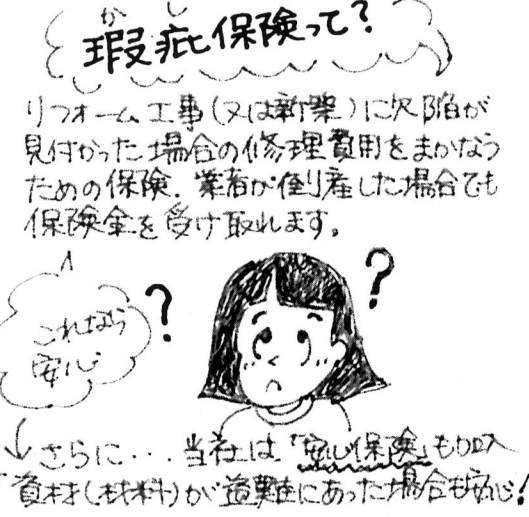 かし
瑕疵保険って?
リフォーム工事(又は新築)に欠陥が
見付かった場合の修理費用をまかなう
ための保険.業者が倒産した場合でも
保険金を受け取れます。
これなら
安心
?
?
↓さらに・・・当社は「安心保険」も加入
資材(材料)が盗難にあった場合も安心!